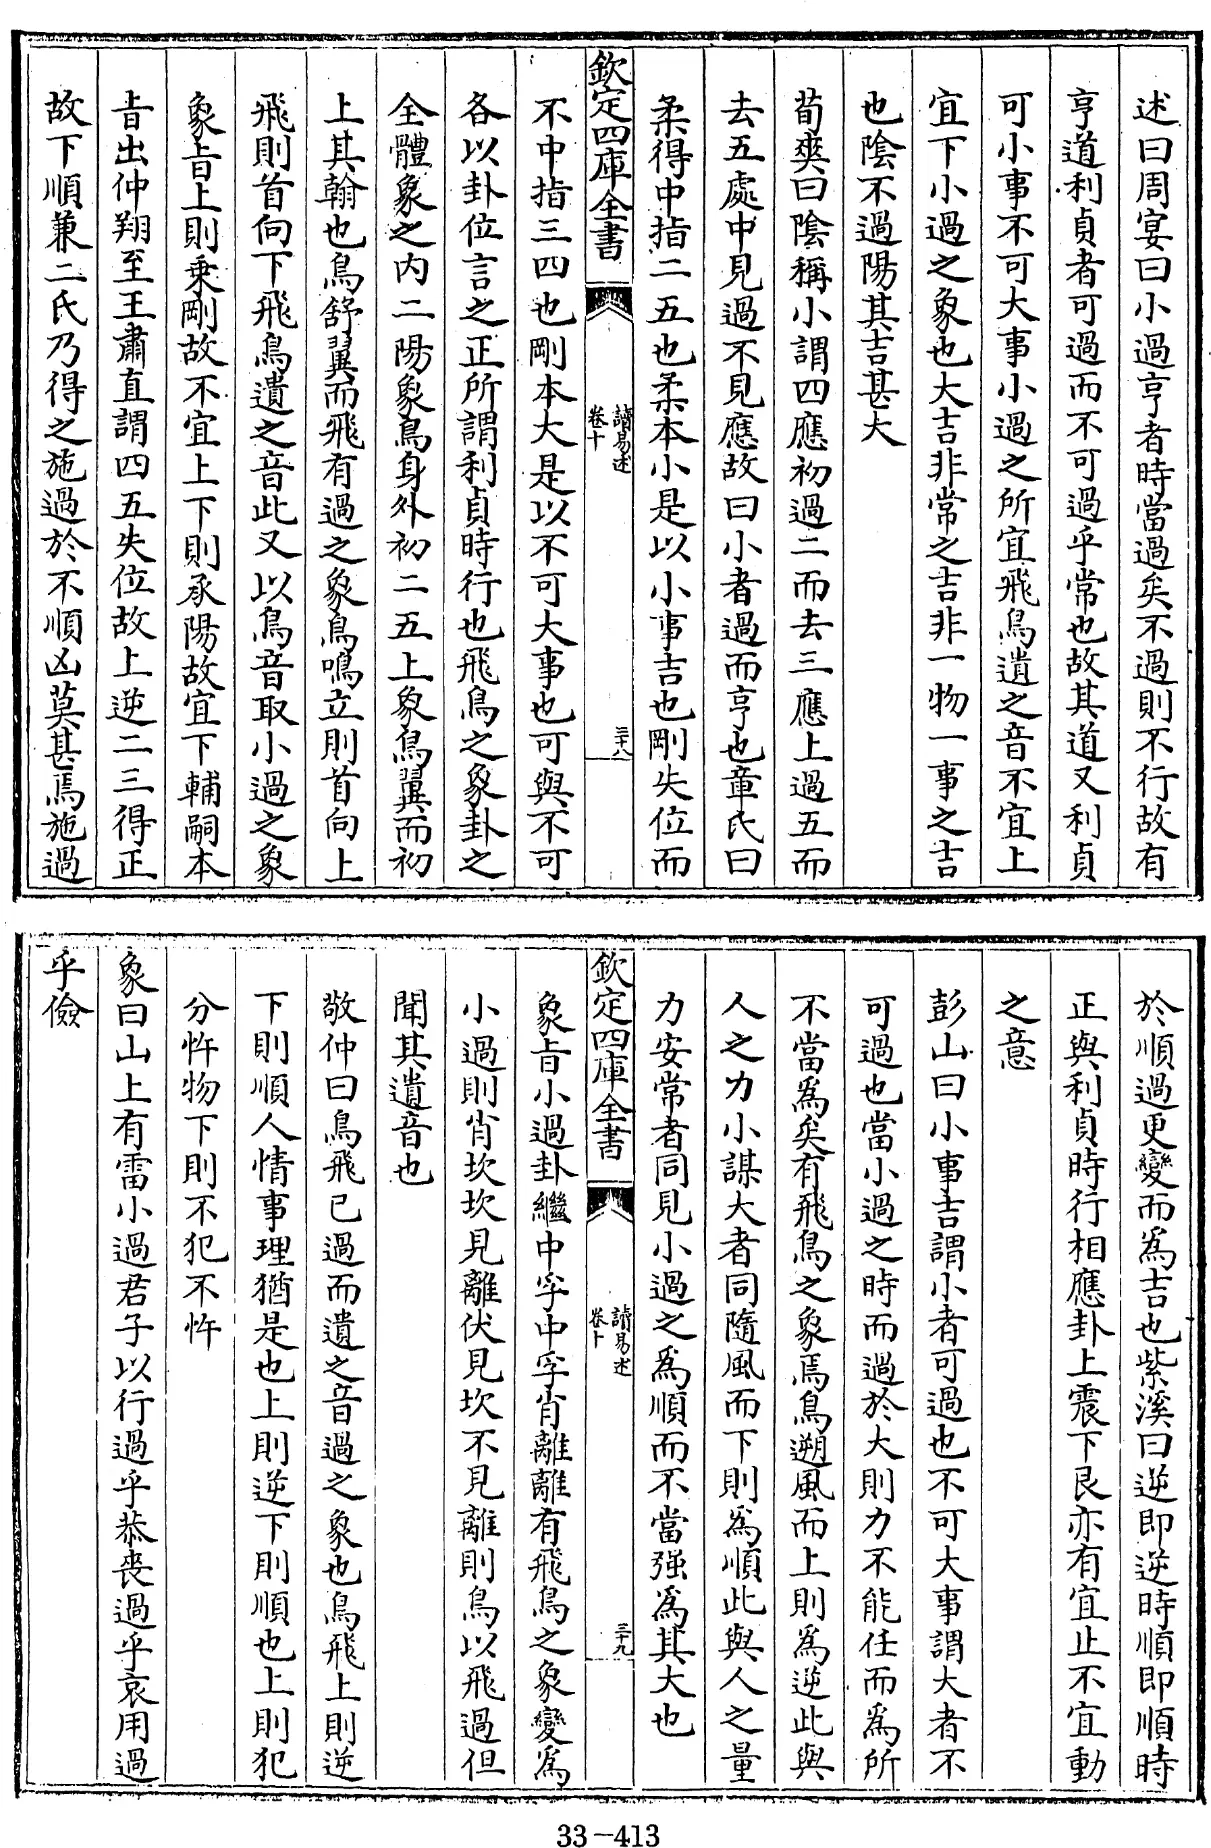 述曰周宴曰小過亨者時當過矣不過則不行故有
亨道利貞者可過而不可過乎常也故其道又利貞
可小事不可大事小過之所宜飛鳥遺之音不宜上
宜下小過之象也大吉非常之吉非一物一事之吉
也陰不過陽其吉甚大
荀爽曰陰稱小謂四應初過二而去三應上過五而
去五處中見過不見應故曰小者過而亨也章氏曰
柔得中指二五也柔本小是以小事吉也剛失位而
欽定四庫全書
讀易述
卷十
三十八
不中指三四也剛本大是以不可大事也可與不可
各以卦位言之正所謂利貞時行也飛鳥之象卦之
全體象之內二陽象鳥身外初二五上象鳥翼而初
上其翰也鳥舒翼而飛有過之象鳥鳴立則首向上
飛則首向下飛鳥遺之音此又以鳥音取小過之象
彖旨上則乗剛故不宜上下則承陽故宜下輔嗣本
旨出仲翔至王肅直謂四五失位故上逆二三得正
故下順兼二氏乃得之施過於不順凶莫甚焉施過
於順過更變而為吉也紫溪曰逆即逆時順即順時
正與利貞時行相應卦上震下艮亦有宜止不宜動
之意
彭山曰小事吉謂小者可過也不可大事謂大者不
可過也當小過之時而過於大則力不能任而為所
不當為矣有飛鳥之象焉鳥遡風而上則為逆此與
人之力小謀大者同隨風而下則為順此與人之量
力安常者同見小過之為順而不當强為其大也
欽定四庫全書
讀易述
卷十
三十九
彖旨小過卦繼中孚中孚肖離離有飛鳥之象變為
小過則肖坎坎見離伏見坎不見離則鳥以飛過但
聞其遺音也
敬仲曰鳥飛已過而遺之音過之象也鳥飛上則逆
下則順人情事理猶是也上則逆下則順也上則犯
分忤物下則不犯不忤
象曰山上有雷小過君子以行過乎恭喪過乎哀用過
乎儉
33-413